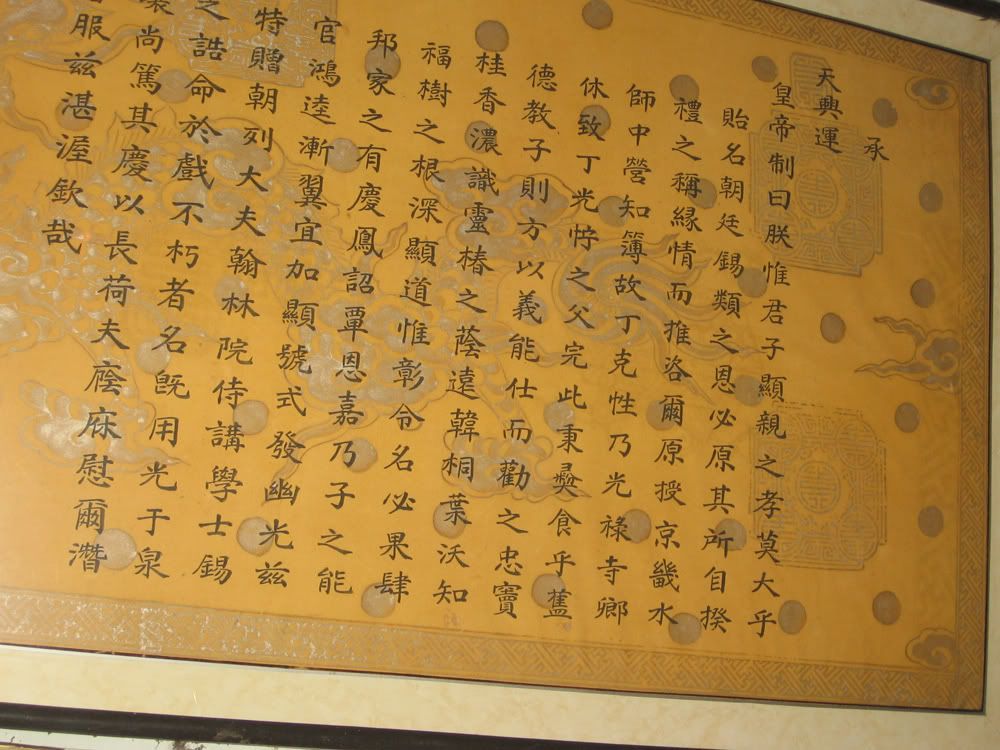 承
天興運
皇帝制曰朕惟君子顯親之孝莫大乎
貽名朝廷錫類之恩必原其所自揆
禮之稱緣情而推咨爾原授京畿水
師中營知簿故丁克性乃光祿寺鄉
休致丁光㤝之父完此秉彜食乎舊
德教子則方以義能仕而勸之忠竇
桂香濃識靈椿之蔭遠韓桐葉沃知
福樹之根深顯道惟彰令名必果肆
邦家之有慶鳳詔覃恩嘉乃子之能
官鴻逵漸翼宜加顯號式發幽光茲
特贈朝列大夫翰林院侍講學士錫
之誥命於戲不朽者名旣用光于泉
壤尚篤其慶以長荷夫庥慰爾潛
服茲湛渥欽哉